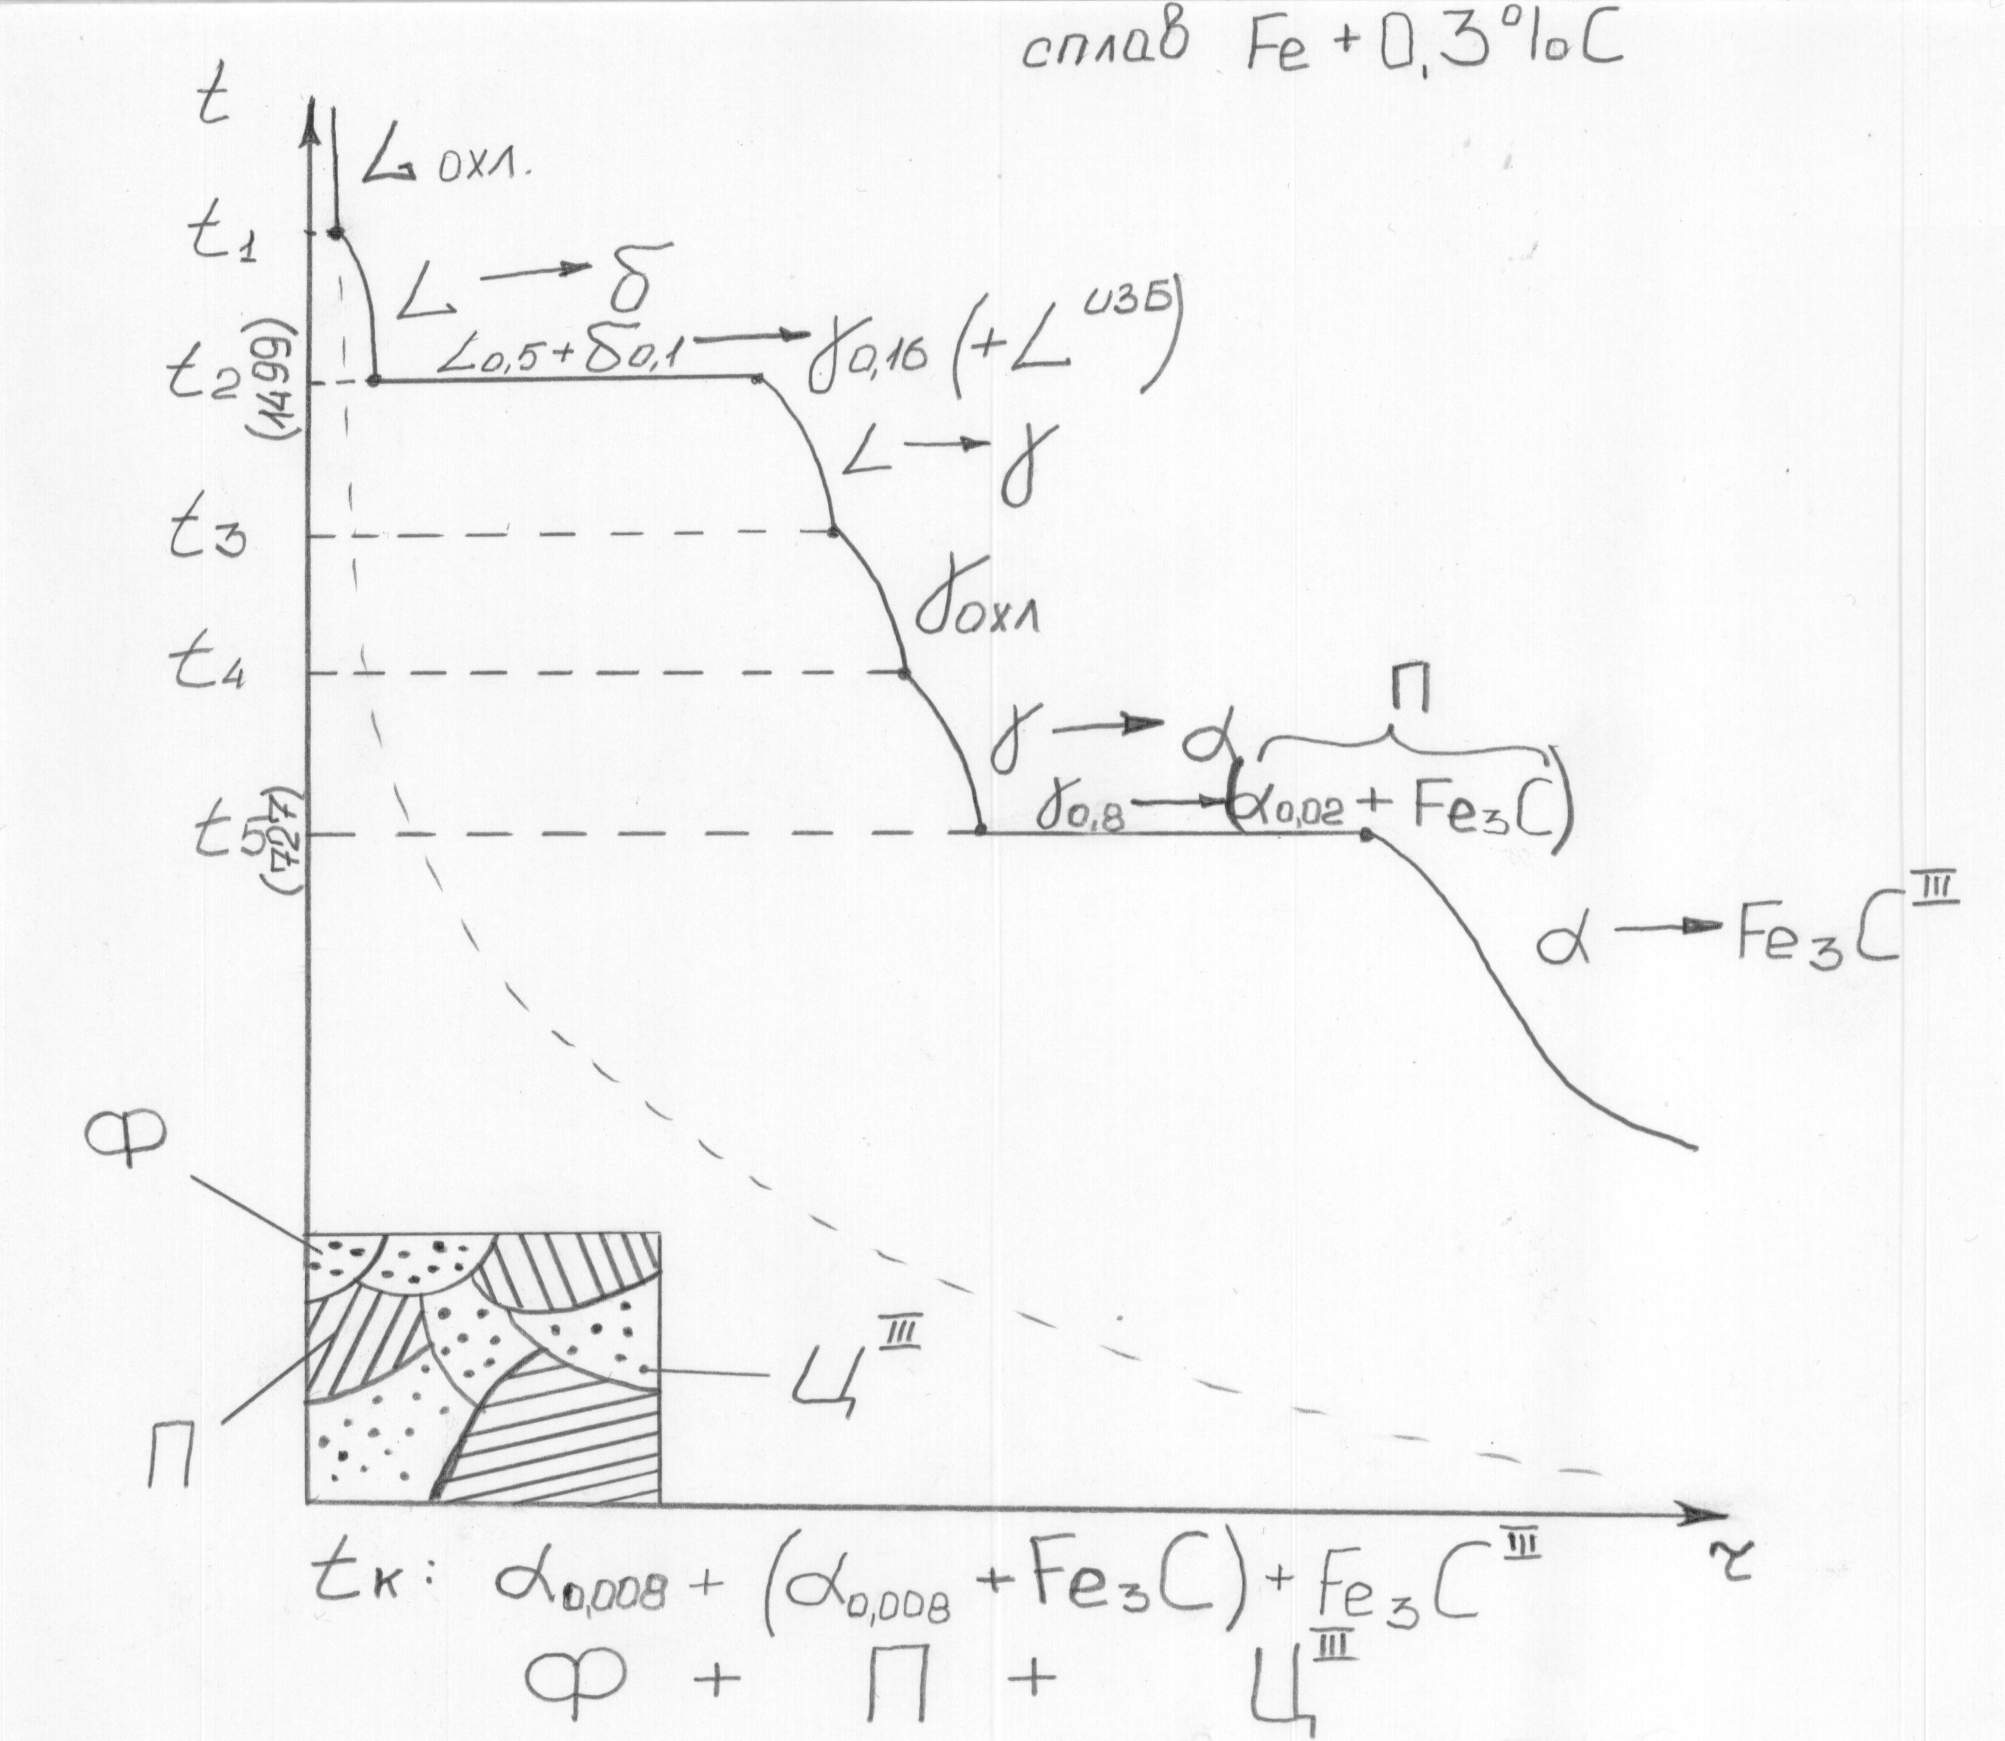 сплав Fe + 0,3% C
t
L охл.
t1
L → δ
t2 (1499)
L0,5 + δ0,1 → γ0,16 (+ L^изб)
L → γ
t3
γохл
t4
П
γ → α
t5 (727)
γ0,8 → (α0,02 + Fe3C)
α → Fe3C^III
Ф
Ц^III
П
τ
tк: α0,008 + (α0,008 + Fe3C) + Fe3C^III
Ф + П + Ц^III